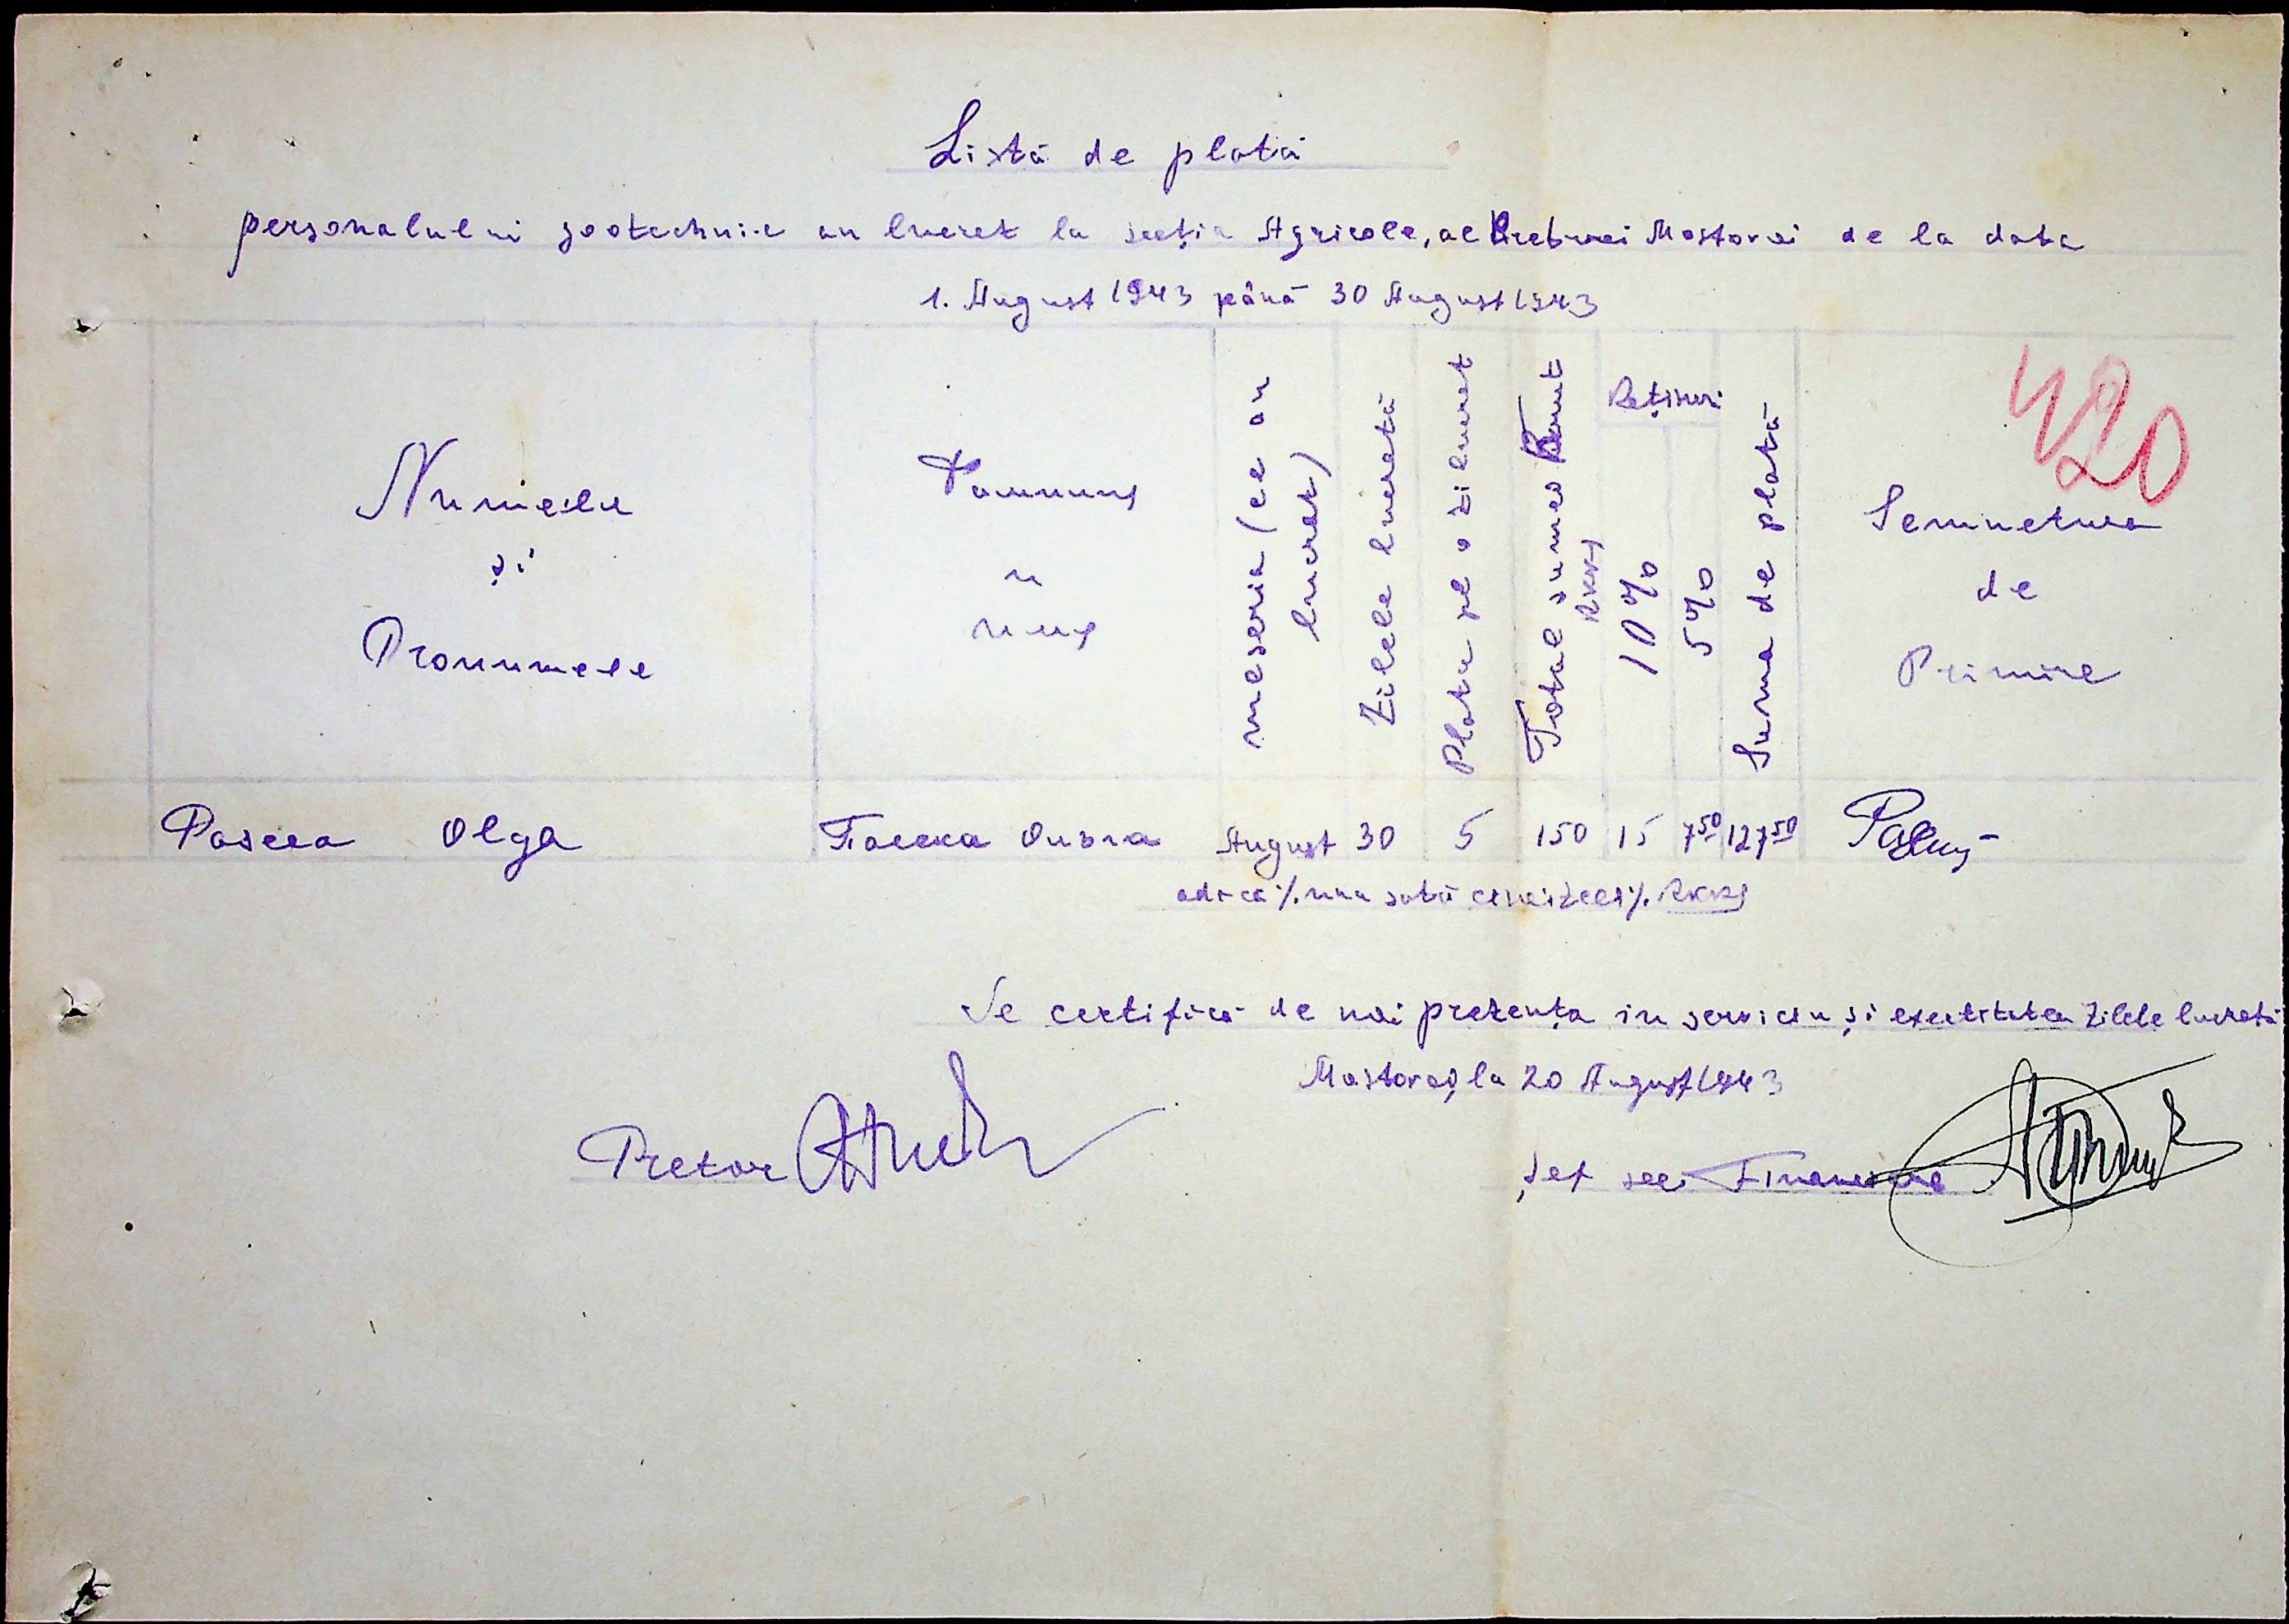 Listă de plată
personalului zootechnic au lucrat la secția Agricole, al Preturei Mostovoi de la data
1. August 1943 până 30 August 1943
420
Numele
și
Pronumele
Фамилия
и
имя
meseria (ce au
lucrat)
Zilele lucrată
Plata pe o zi lucrat
Total sumei
RKKS
Rețineri
10%
5%
Suma de plată
Semnetura
de
Primire
Pascea Olga
Паска Ольга
August 30 5 150 15 750 127 50
adică %. una sută cincizeci %. RKKS
Se certifică de noi prezența in serviciu și exactitatea zilele lucrată
Mostovoi, la 20 August 1943
Pretor
Șef sec. Financiare